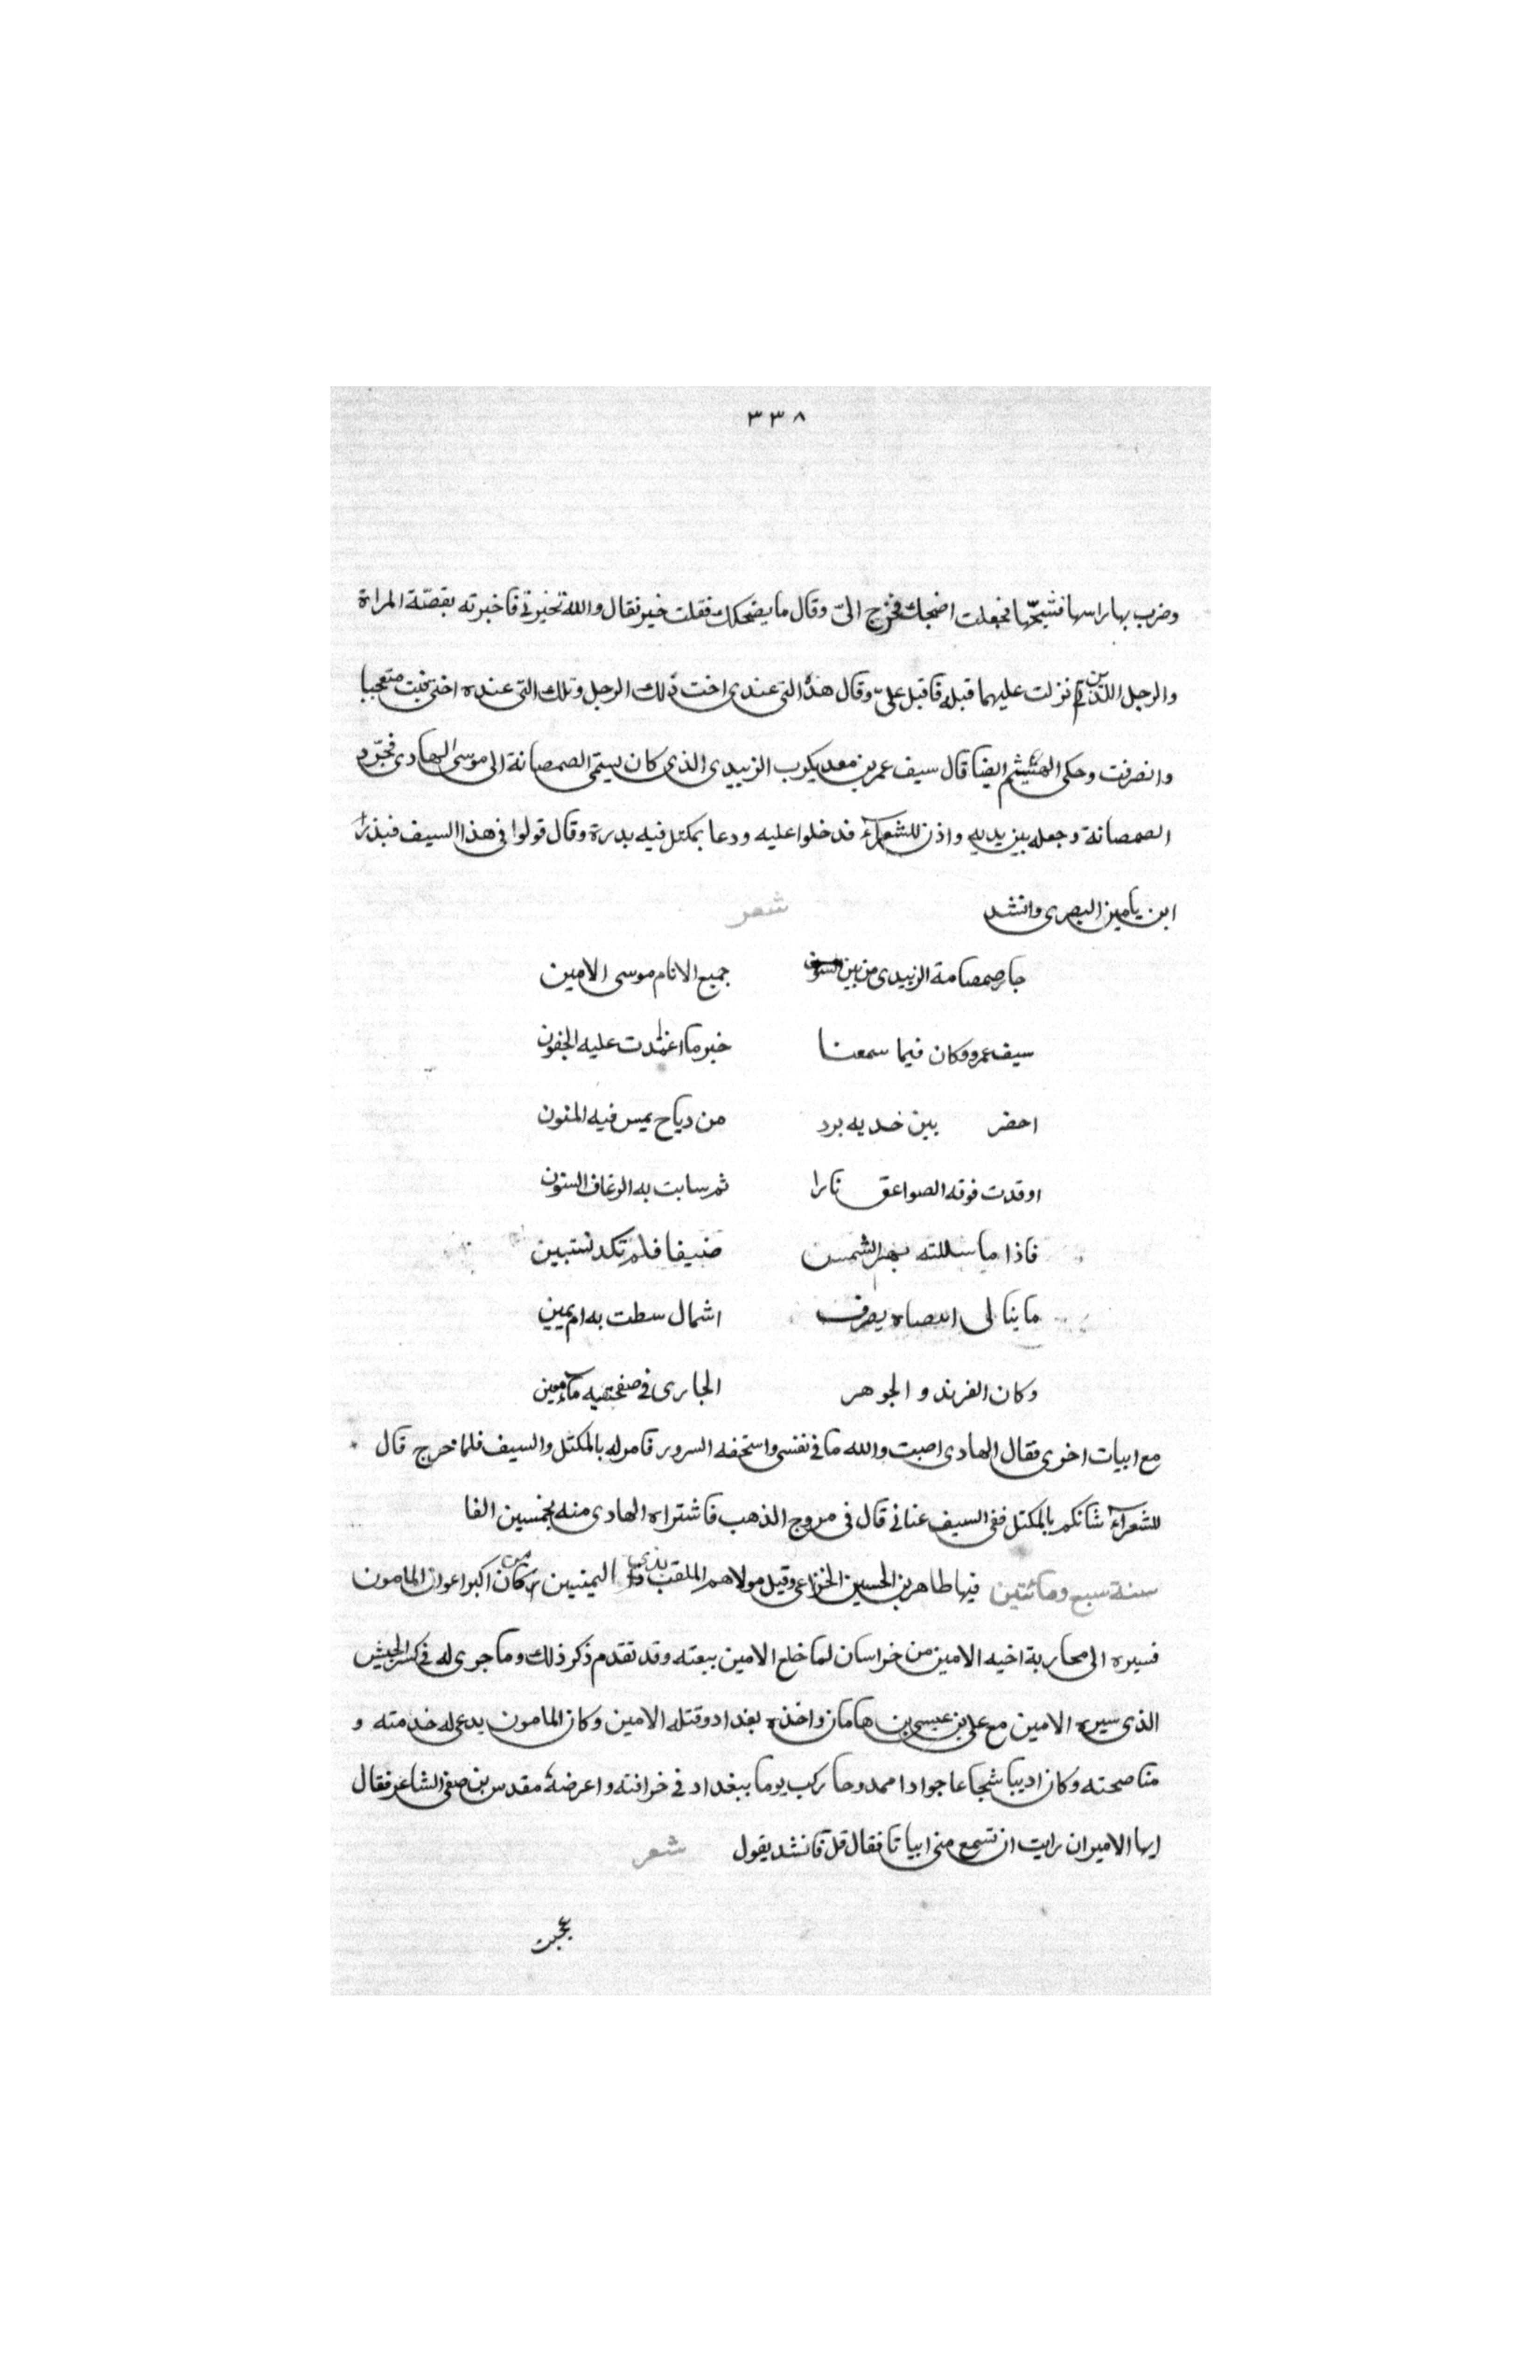 ٣٣٨
وضرب بها راسها فشجّها فجعلت اضحك فخرج الىّ وقال ما يضحكك فقلت خير فقال والله تخبرنى فاخبرته بقصّة المراة
والرجل اللذين نزلت عليهما قبله فاقبل علىّ وقال هذه التى عندى اخت ذلك الرجل وتلك التى عنده اختى فبت متعجبا
وانصرفت وحكى الهيثم ايضا قال سيف عمر بن معد يكرب الزبيدى الذى كان يسمّى الصمصانة الى موسى الهادى فجرّد
الصمصانة وجعله بين يديه واذن للشعرآء فدخلوا عليه ودعا بمكتل فيه بدرة وقال قولوا فى هذا السيف فبذر
ابن يامين البصرى وانشد شعر
جاز صمصامة الزبيدى من بين جميع الانام موسى الامين
سيف عمرو وكان فيما سمعنا خير ما اغمدت عليه الجفون
احضر بين خديه برد من دياح يميس فيه المنون
اوقدت فوقه الصواعق نارا ثم سابت به الزعاف المنون
فاذا ما سللته بهر الشمس ضيفا فلم تكد تستبين
ما ينالى انتضاه يصرف اشمال سطت به ام يمين
وكان الفرند والجوهر الجارى فى صفحتيه مآء معين
مع ابيات اخرى فقال الهادى اصبت والله ما فى نفسى واستخفه السرور فامر له بالمكتل والسيف فلما خرج قال
للشعرآء شانكم بالمكتل ففى السيف عنانى قال فى مروج الذهب فاشتراه الهادى منه بخمسين الفا
سنة سبع ومائتين فيها طاهر بن الحسين الخزاعى وقيل مولاهم الملقب بذى اليمنيين كان من اكبر اعوان المامون
فسيره الى محاربة اخيه الامين من خراسان لما خلع الامين بيعته وقد تقدم ذكر ذلك وما جرى له فى كسر الجيش
الذى سيره الامين مع على بن عيسى بن هامان واخذه بغداد وقتله الامين وكان المامون يدعى له خدمته و
مناصحته وكان اديبا شجاعا جوادا ممدوحا ركب يوما ببغداد فى خرافته واعرضه مقدس بن صفى الشاعر فقال
ايها الامير ان رايت ان تسمع منى ابياتا فقال قل فانشد يقول شعر
عجبت